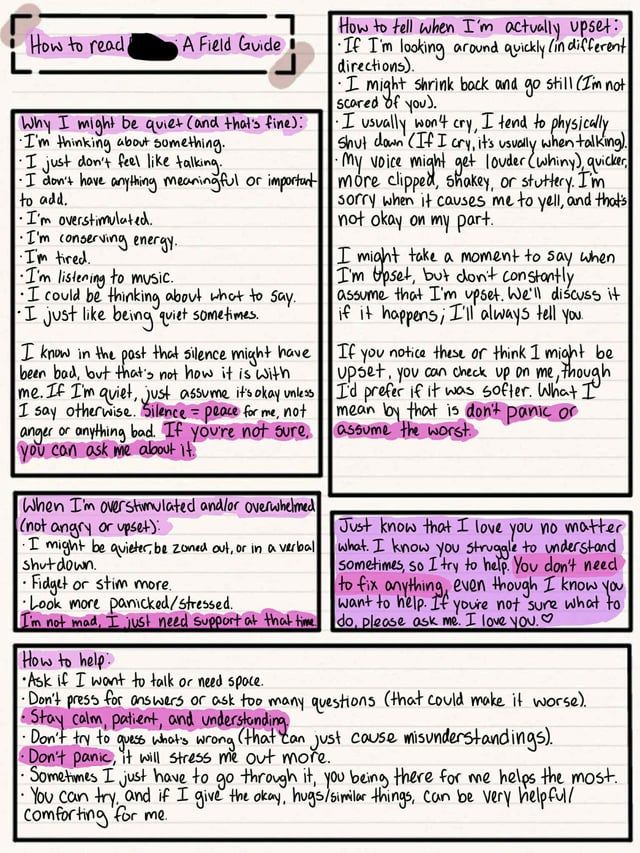 How to read : A Field Guide
Why I might be quiet (and that's fine):
· I'm thinking about something.
· I just don't feel like talking.
· I don't have anything meaningful or important
to add.
· I'm overstimulated.
· I'm conserving energy.
· I'm tired.
· I'm listening to music.
· I could be thinking about what to say.
· I just like being quiet sometimes.
I know in the past that silence might have
been bad, but that's not how it is with
me. If I'm quiet, just assume it's okay unless
I say otherwise. Silence = peace for me, not
anger or anything bad. If you're not sure,
you can ask me about it.
How to tell when I'm actually upset:
· If I'm looking around quickly (in different
directions).
· I might shrink back and go still (I'm not
scared of you).
· I usually won't cry, I tend to physically
shut down (If I cry, it's usually when talking).
· My voice might get louder (whiny), quicker,
more clipped, shakey, or stuttery. I'm
sorry when it causes me to yell, and that's
not okay on my part.
I might take a moment to say when
I'm upset, but don't constantly
assume that I'm upset. We'll discuss it
if it happens; I'll always tell you.
If you notice these or think I might be
upset, you can check up on me, though
I'd prefer if it was softer. What I
mean by that is don't panic or
assume the worst.
When I'm overstimulated and/or overwhelmed
(not angry or upset):
· I might be quieter, be zoned out, or in a verbal
shutdown.
· Fidget or stim more.
· Look more panicked/stressed.
I'm not mad, I just need support at that time.
Just know that I love you no matter
what. I know you struggle to understand
sometimes, so I try to help. You don't need
to fix anything, even though I know you
want to help. If you're not sure what to
do, please ask me. I love you. ♡
How to help:
· Ask if I want to talk or need space.
· Don't press for answers or ask too many questions (that could make it worse).
· Stay calm, patient, and understanding
· Don't try to guess what's wrong (that can just cause misunderstandings).
· Don't panic, it will stress me out more.
· Sometimes I just have to go through it, you being there for me helps the most.
· You can try, and if I give the okay, hugs/similar things, can be very helpful/
comforting for me.